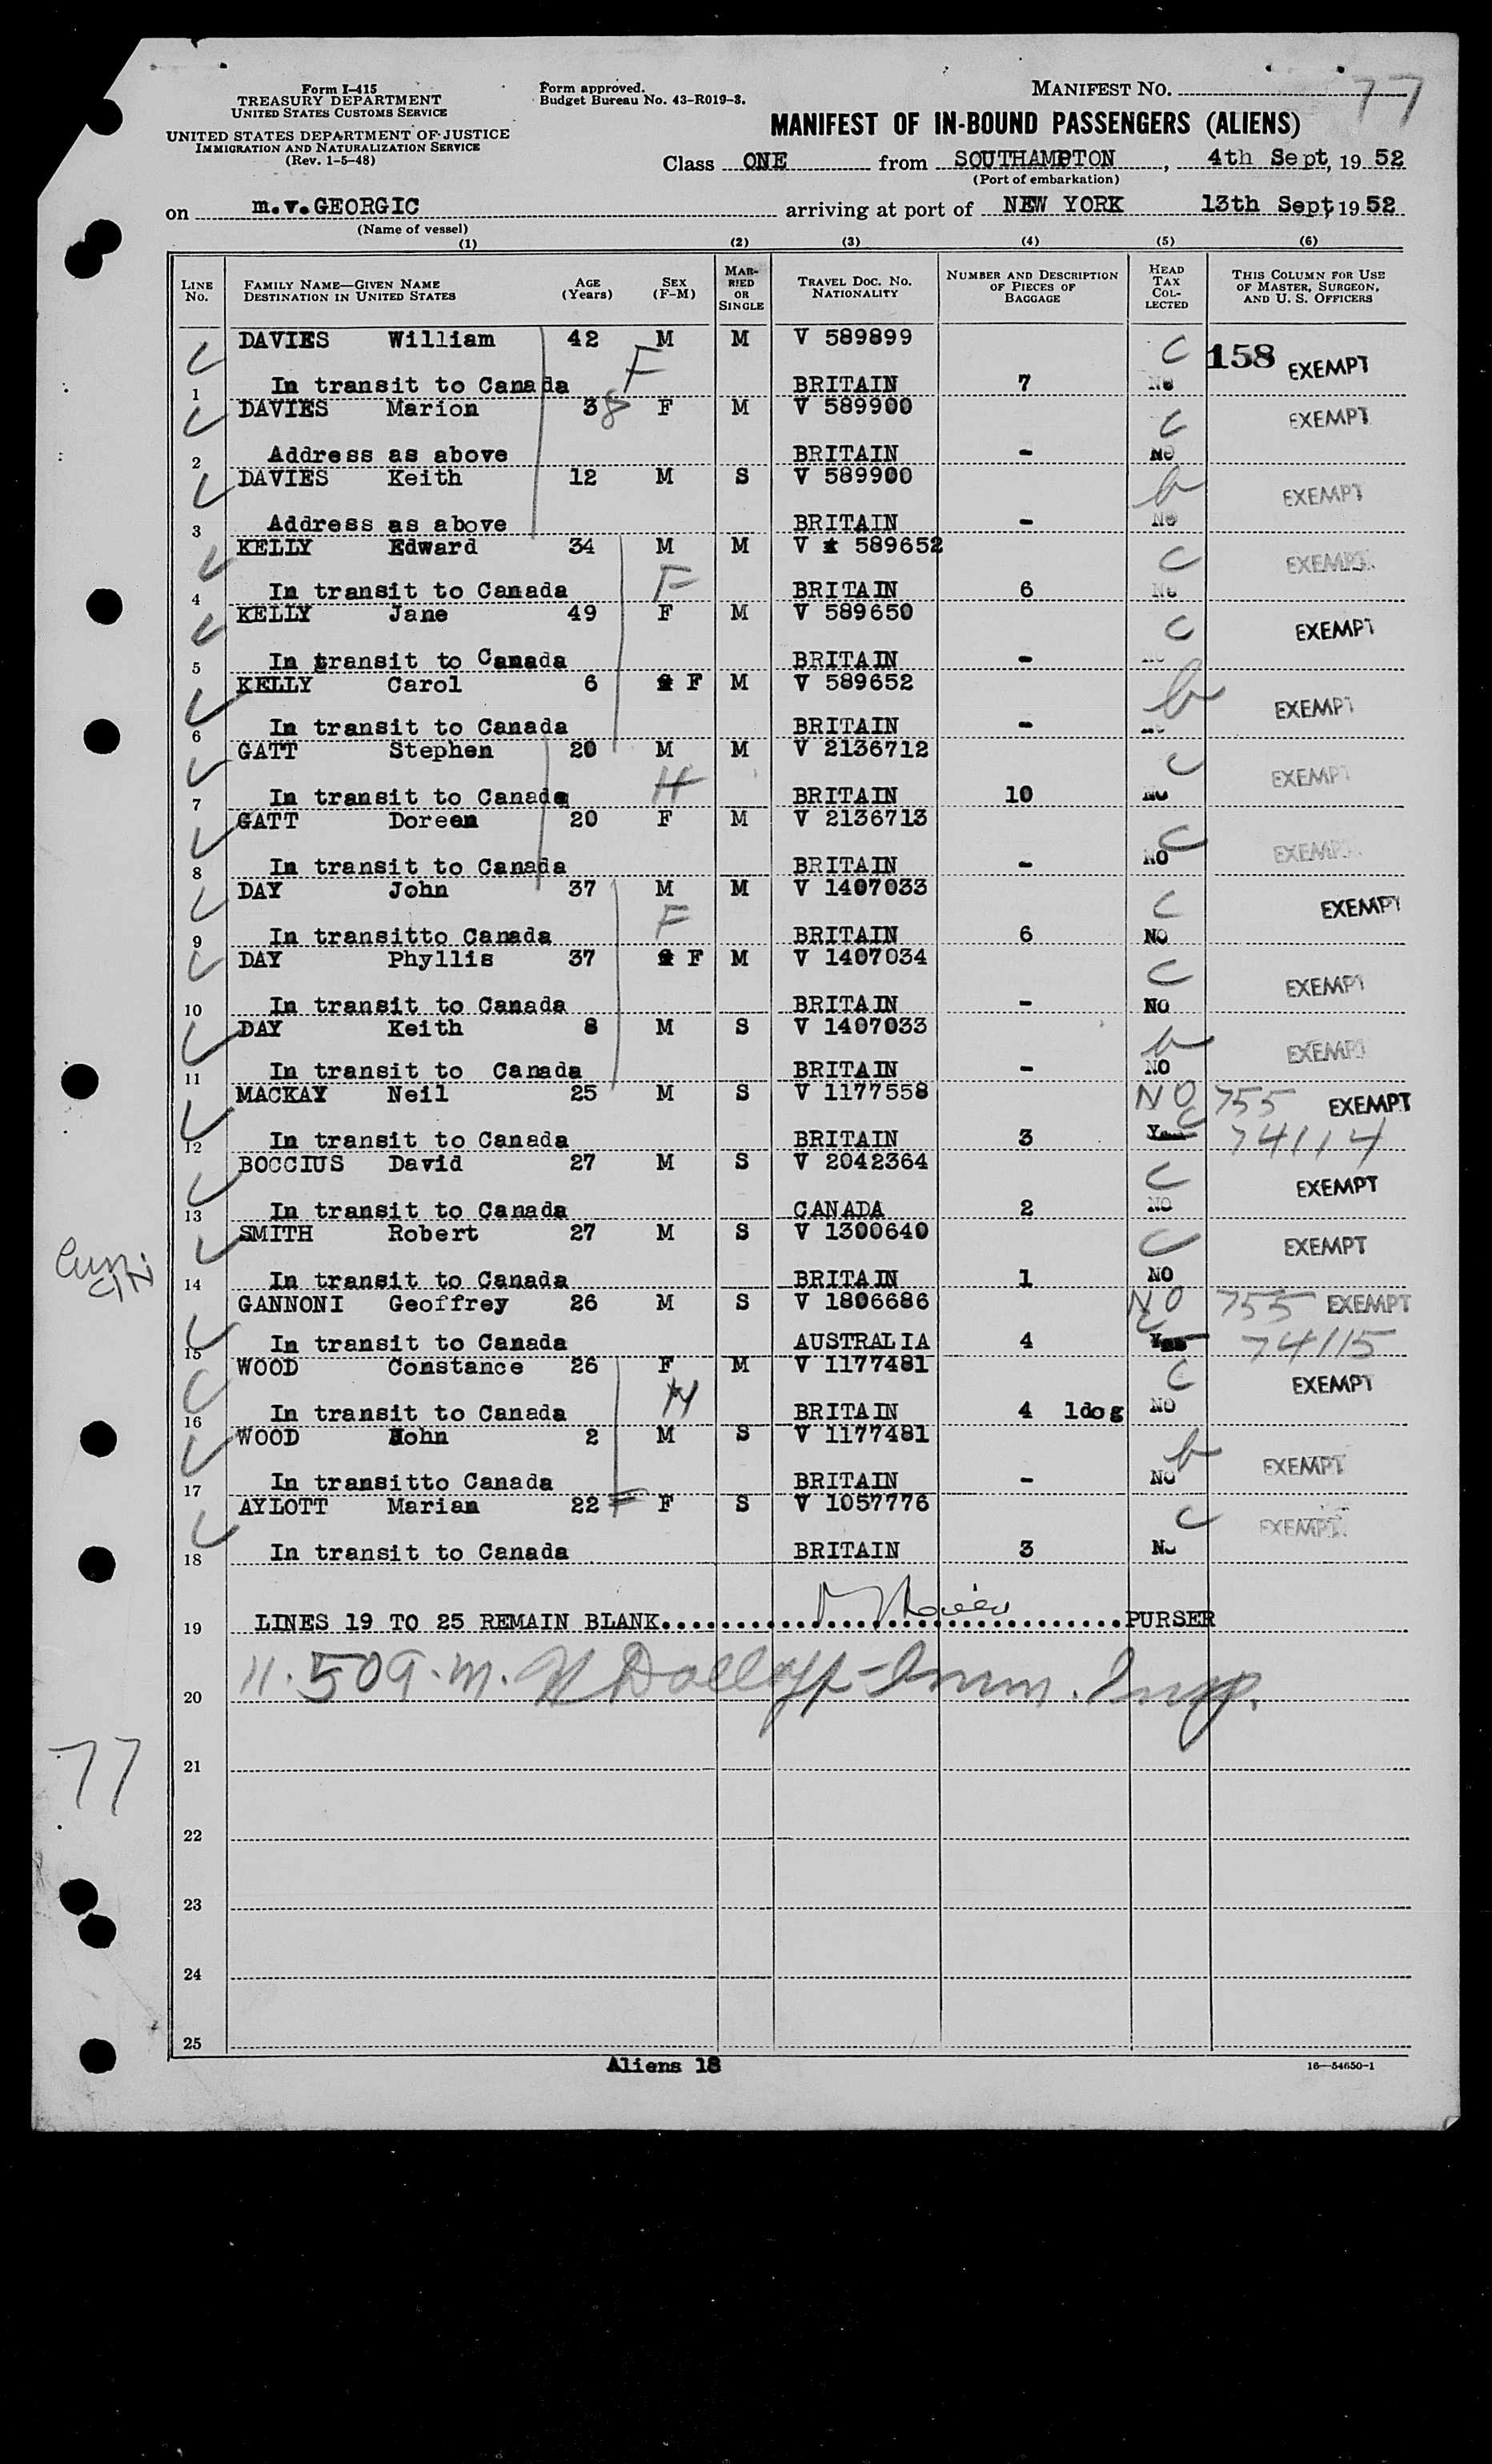 Form I-415
TREASURY DEPARTMENT
UNITED STATES CUSTOMS SERVICE
UNITED STATES DEPARTMENT OF JUSTICE
IMMIGRATION AND NATURALIZATION SERVICE
(Rev. 1-5-48)
Form approved.
Budget Bureau No. 43-R019-3.
MANIFEST NO. 77
MANIFEST OF IN-BOUND PASSENGERS (ALIENS)
Class ONE from SOUTHAMPTON, 4th Sept, 19 52
(Port of embarkation)
on m.v.GEORGIC arriving at port of NEW YORK 13th Sept, 19 52
(Name of vessel)
(1) (2) (3) (4) (5) (6)
LINE NO. FAMILY NAME—GIVEN NAME DESTINATION IN UNITED STATES AGE (Years) SEX (F-M) MARRIED OR SINGLE TRAVEL DOC. NO. NATIONALITY NUMBER AND DESCRIPTION OF PIECES OF BAGGAGE HEAD TAX COLLECTED THIS COLUMN FOR USE OF MASTER, SURGEON, AND U. S. OFFICERS
DAVIES William 42 M M V 589899 C 158 EXEMPT
1 In transit to Canada F BRITAIN 7 No
DAVIES Marion 38 F M V 589900 C EXEMPT
2 Address as above BRITAIN - NO
DAVIES Keith 12 M S V 589900 b EXEMPT
3 Address as above BRITAIN - No
KELLY Edward 34 M M V 589652 C EXEMPT
4 In transit to Canada F BRITAIN 6 No
KELLY Jane 49 F M V 589650 C EXEMPT
5 In transit to Canada BRITAIN -
KELLY Carol 6 F M V 589652 b EXEMPT
6 In transit to Canada BRITAIN -
GATT Stephen 20 M M V 2136712 C EXEMPT
7 In transit to Canada H BRITAIN 10 NO
GATT Doreen 20 F M V 2136713 C EXEMPT
8 In transit to Canada BRITAIN - NO
DAY John 37 M M V 1407033 C EXEMPT
9 In transitto Canada F BRITAIN 6 NO
DAY Phyllis 37 F M V 1407034 C EXEMPT
10 In transit to Canada BRITAIN - NO
DAY Keith 8 M S V 1407033 b EXEMPT
11 In transit to Canada BRITAIN - NO
MACKAY Neil 25 M S V 1177558 NO C 755 EXEMPT
12 In transit to Canada BRITAIN 3 Yes 74114
BOCCIUS David 27 M S V 2042364 C EXEMPT
13 In transit to Canada CANADA 2 NO
SMITH Robert 27 M S V 1300640 C EXEMPT
14 In transit to Canada BRITAIN 1 NO
GANNONI Geoffrey 26 M S V 1806686 NO C 755 EXEMPT
15 In transit to Canada AUSTRALIA 4 Yes 74115
WOOD Constance 26 F M V 1177481 C EXEMPT
16 In transit to Canada H BRITAIN 4 1dog NO
WOOD John 2 M S V 1177481 b EXEMPT
17 In transitto Canada BRITAIN - NO
AYLOTT Marian 22 F S V 1057776 C EXEMPT
18 In transit to Canada BRITAIN 3 No
19 LINES 19 TO 25 REMAIN BLANK........................PURSER
20 11.50 a.m. Imm. Insp.
21
77
22
23
24
25
Aliens 18
16—54650-1